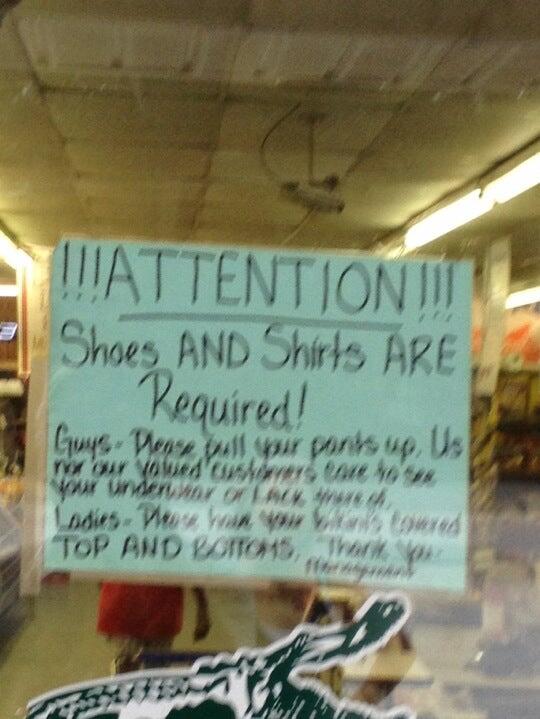 !!!ATTENTION!!!
Shoes AND Shirts ARE
Required!
Guys - Please pull your pants up. Us
nor our valued customers care to see
your underwear or LACK there of.
Ladies - Please have your bikini's covered
TOP AND BOTTOMS. Thank you.
Management